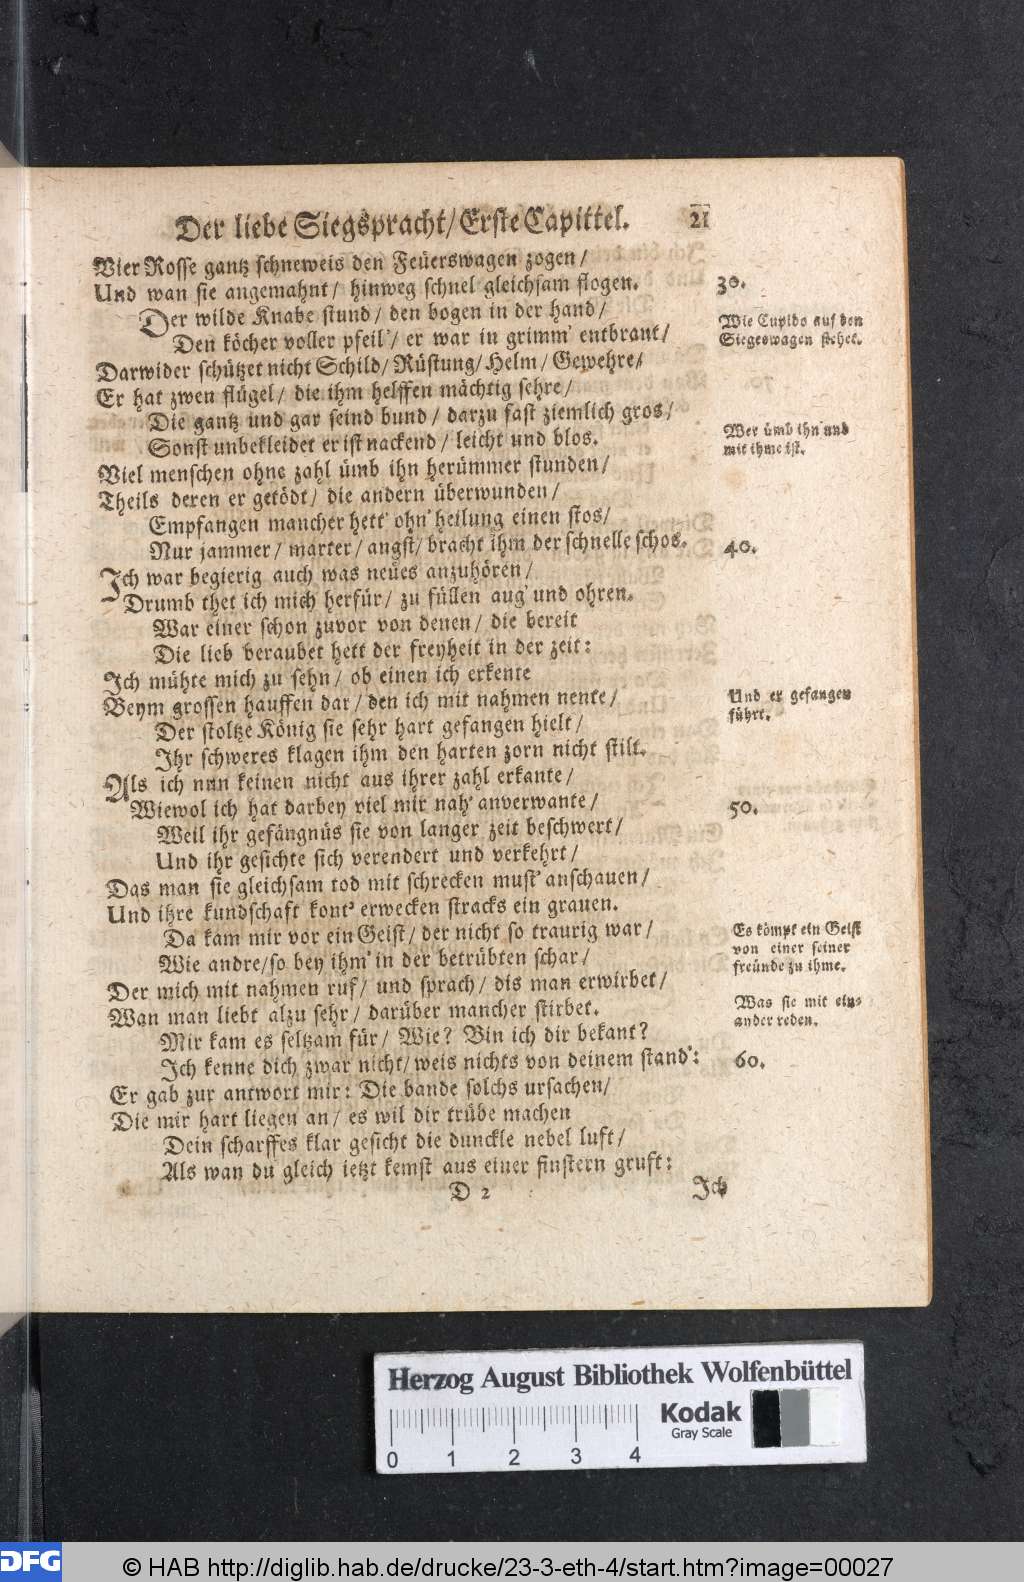 Der liebe Siegspracht/ Erste Capittel. 21
Vier Rosse gantz schneweis den Feüerswagen zogen/
Und wan sie angemahnt/ hinweg schnel gleichsam flogen. 30.
Der wilde Knabe stund/ den bogen in der hand/
Wie Cupido auf den
Den köcher voller pfeil'/ er war in grimm' entbrant/
Siegeswagen stehet.
Darwider schützet nicht Schild/ Rüstung/ Helm/ Gewehre/
Er hat zwen flügel/ die ihm helffen mächtig sehre/
Die gantz und gar seind bund/ darzu fast ziemlich gros/
Wer ümb ihn und
Sonst unbekleidet er ist nackend/ leicht und blos.
mit ihme ist.
Viel menschen ohne zahl ümb ihn herümmer stunden/
Theils deren er getödt/ die andern überwunden/
Empfangen mancher hett' ohn' heilung einen stos/
Nur jammer/ marter/ angst/ bracht ihm der schnelle schos. 40.
Ich war begierig auch was neües anzuhören/
Drumb thet ich mich herfür/ zu füllen aug' und ohren.
War einer schon zuvor von denen/ die bereit
Die lieb beraubet hett der freyheit in der zeit:
Ich mühte mich zu sehn/ ob einen ich erkente
Beym grossen hauffen dar/ den ich mit nahmen nente/
Und er gefangen
führt.
Der stoltze König sie sehr hart gefangen hielt/
Ihr schweres klagen ihm den harten zorn nicht stilt.
Als ich nun keinen nicht aus ihrer zahl erkante/
Wiewol ich hat darbey viel mir nah' anverwante/ 50.
Weil ihr gefängnüs sie von langer zeit beschwert/
Und ihr gesichte sich verendert und verkehrt/
Das man sie gleichsam tod mit schrecken must' anschauen/
Und ihre kundschaft kont' erwecken stracks ein grauen.
Da kam mir vor ein Geist/ der nicht so traurig war/
Es kömpt ein Geist
von einer seiner
freünde zu ihme.
Wie andre/ so bey ihm' in der betrübten schar/
Der mich mit nahmen ruf/ und sprach/ dis man erwirbet/
Was sie mit ein-
ander reden.
Wan man liebt alzu sehr/ darüber mancher stirbet.
Mir kam es seltzam für/ Wie? Bin ich dir bekant?
Ich kenne dich zwar nicht/ weis nichts von deinem stand': 60.
Er gab zur antwort mir: Die bande solchs ursachen/
Die mir hart liegen an/ es wil dir trübe machen
Dein scharffes klar gesicht die dunckle nebel luft/
Als wan du gleich ietzt kemst aus einer finstern gruft:
D 2 Ich
Herzog August Bibliothek Wolfenbüttel
Kodak
Gray Scale
0 1 2 3 4
DFG © HAB http://diglib.hab.de/drucke/23-3-eth-4/start.htm?image=00027